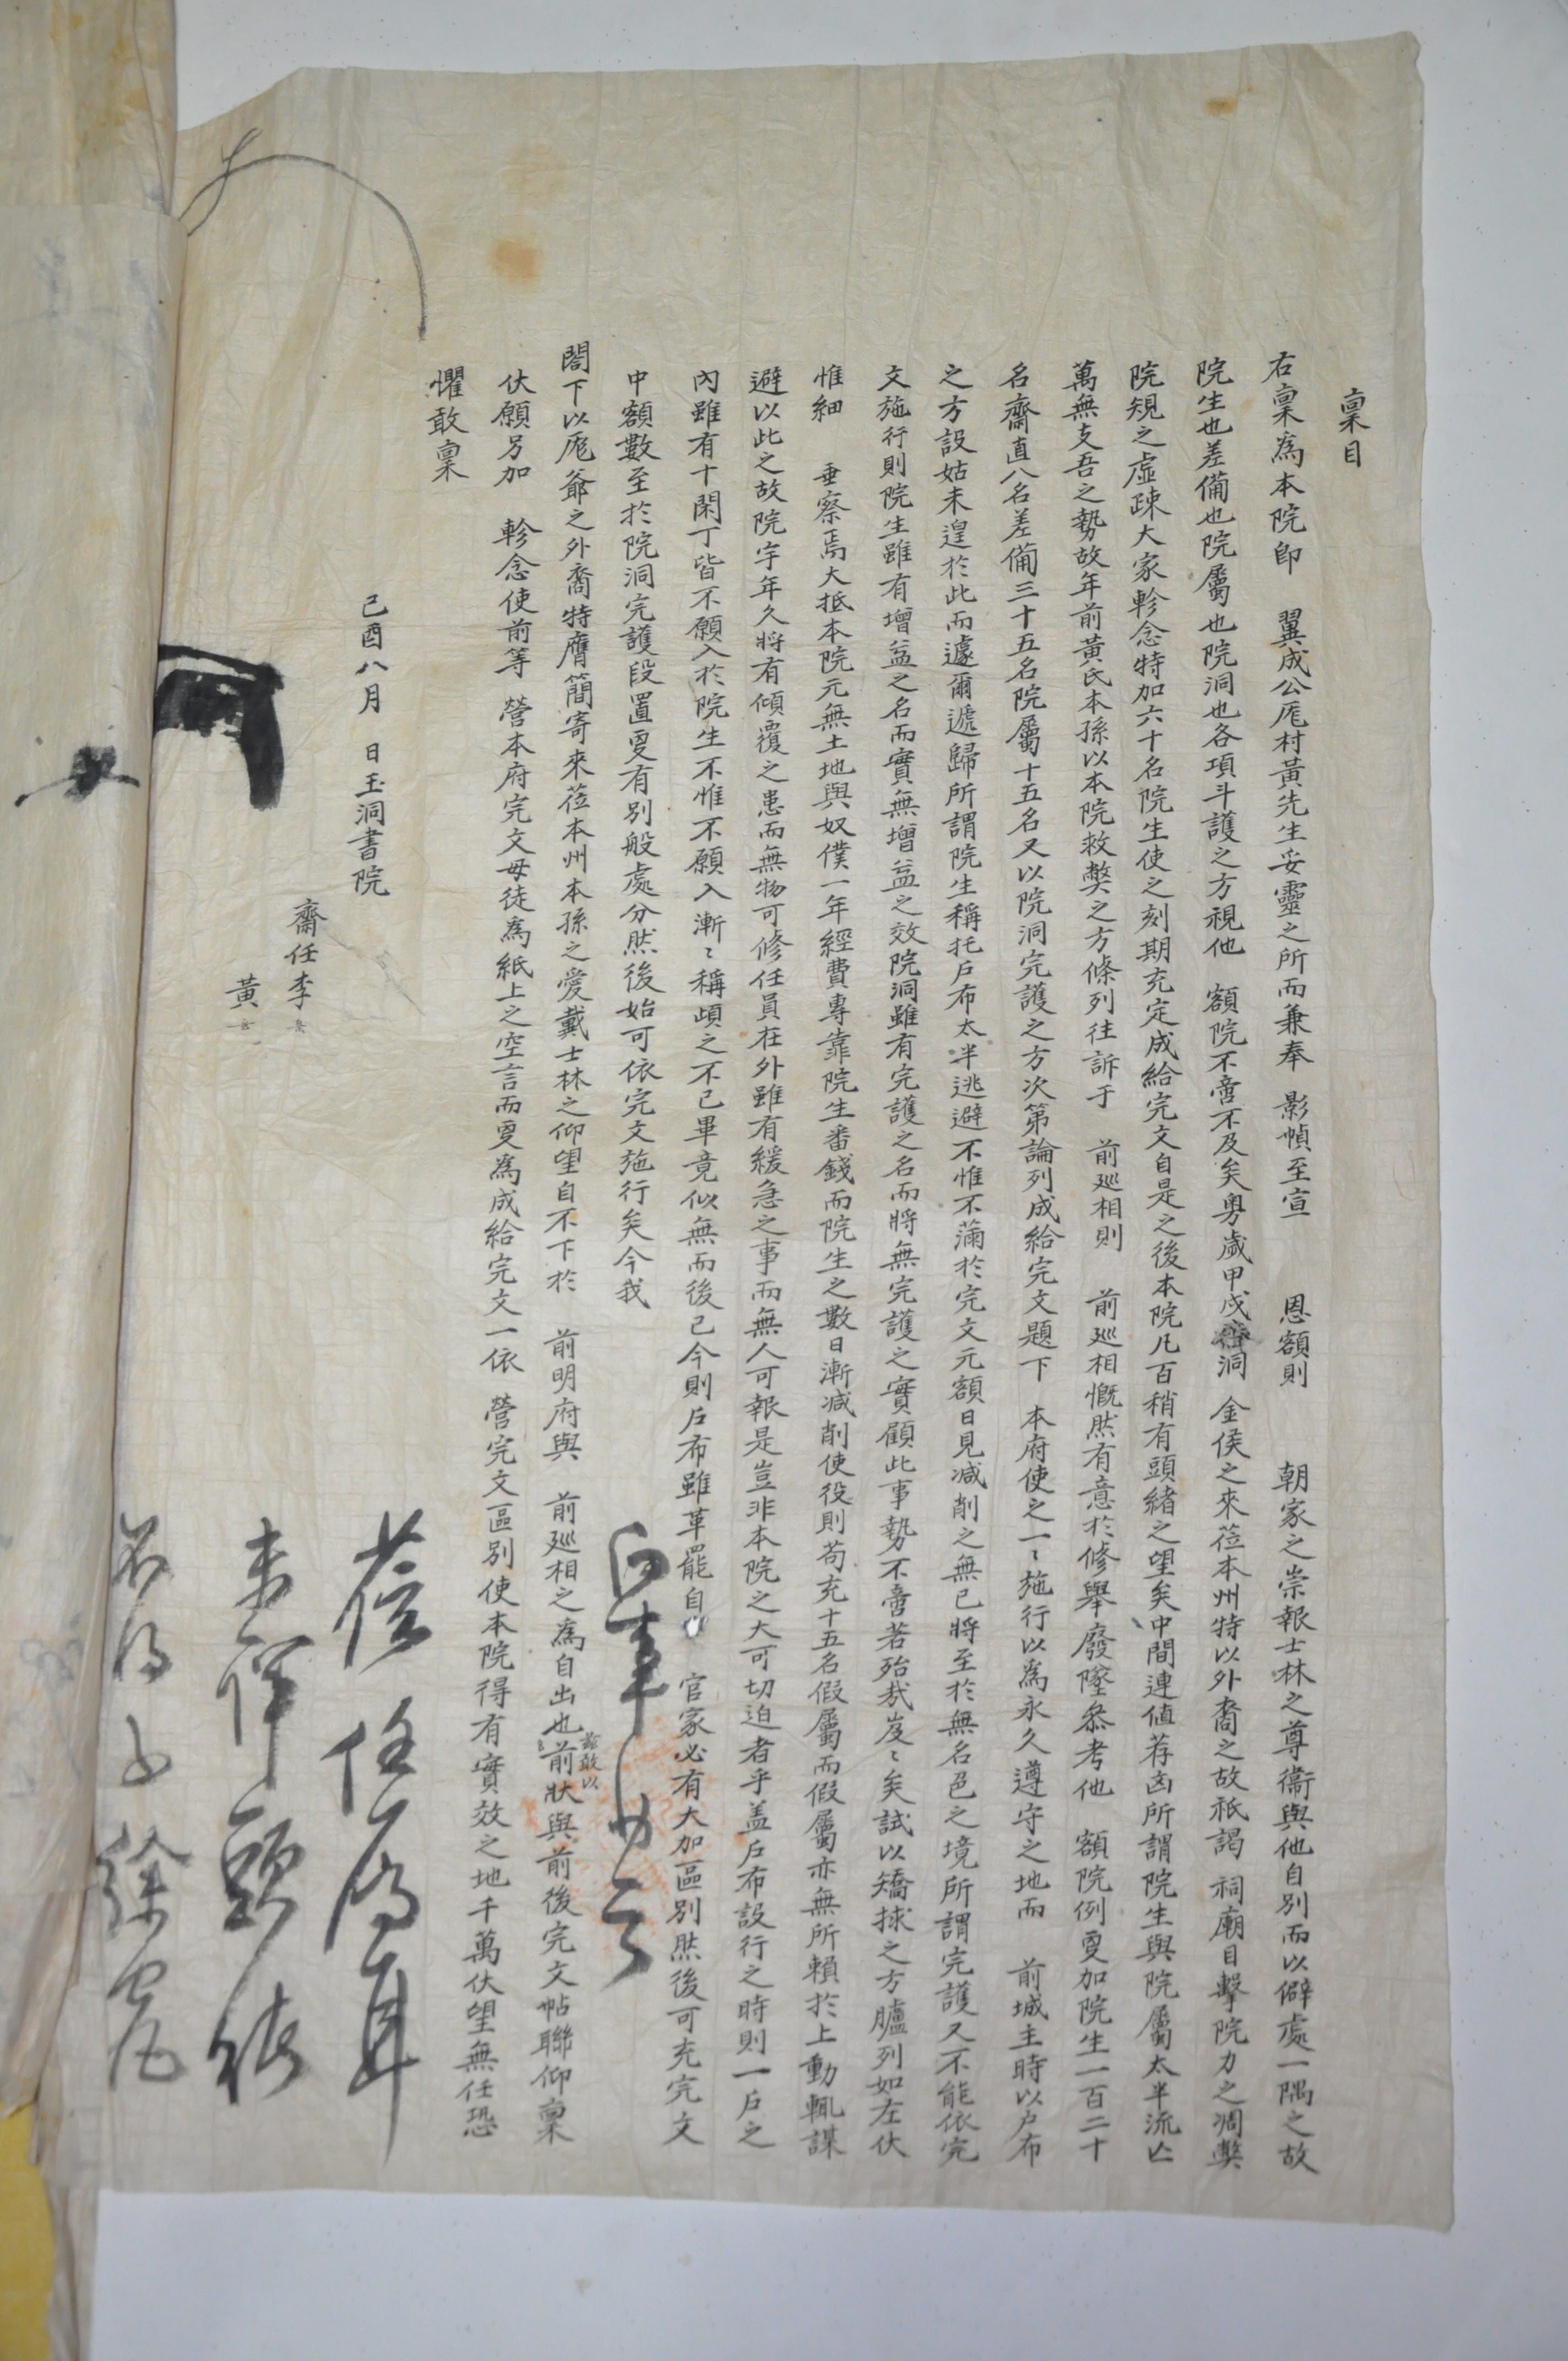 稟目
右稟爲本院卽 翼成公厖村黃先生妥靈之所而兼奉 影幀至宣 恩額則 朝家之崇報士林之尊衛與他自別而以僻處一隅之故
院生也差備也院屬也院洞也各項斗護之方視他 額院不啻不及矣粤歲甲戌 洞 金侯之來莅本州特以外裔之故祇謁 祠廟目擊院力之凋弊
院規之虛疎大家軫念特加六十名院生使之刻期充定成給完文自是之後本院凡百稍有頭緖之望矣中間連値荐凶所謂院生與院屬太半流亡
萬無支吾之勢故年前黃氏本孫以本院救獘之方條列往訴于 前巡相則 前巡相慨然有意於修擧廢墜叅考他 額院例更加院生一百二十
名齋直八名差備三十五名院屬十五名又以院洞完護之方次第論列成給完文題下 本府使之一〻施行以爲永久遵守之地而 前城主時以户布
之方設姑未遑於此而遽爾遞歸所謂院生稱托户布太半逃避不惟不滿於完文元額日見减削之無已將至於無名色之境所謂完護又不能依完
文施行則院生雖有增益之名而實無增益之效院洞雖有完護之名而將無完護之實顧此事勢不啻若殆哉岌〻矣試以矯捄之方臚列如左伏
惟細 垂察焉大抵本院元無土地與奴僕一年經費專靠院生番錢而院生之數日漸减削使役則苟充十五名假屬而假屬亦無所賴於上動輒謀
避以此之故院宇年久將有傾覆之患而無物可修任員在外雖有緩急之事而無人可報是豈非本院之大可切迫者乎盖户布設行之時則一户之
內雖有十閑丁皆不願入於院生不惟不願入漸〻稱頉之不已畢竟似無而後已今則户布雖革罷自 官家必有大加區別然後可充完文
中額數至於院洞完護段置更有別般處分然後始可依完文施行矣今我
閤下以厖爺之外裔特膺簡寄來莅本州本孫之愛戴士林之仰望自不下於 前明府與 前巡相之爲自出也玆敢以前狀與前後完文帖聯仰稟
伏願另加 軫念使前等 營本府完文毋徒爲紙上之空言而更爲成給完文一依 營完文區別使本院得有實效之地千萬伏望無任恐
懼敢稟
己酉八月 日玉洞書院
齋任李
黃